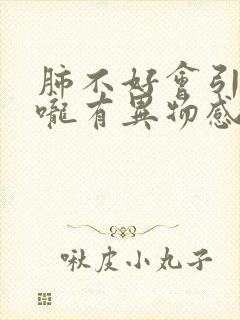 肺不好會引
嚨有異物感
啾皮小丸子